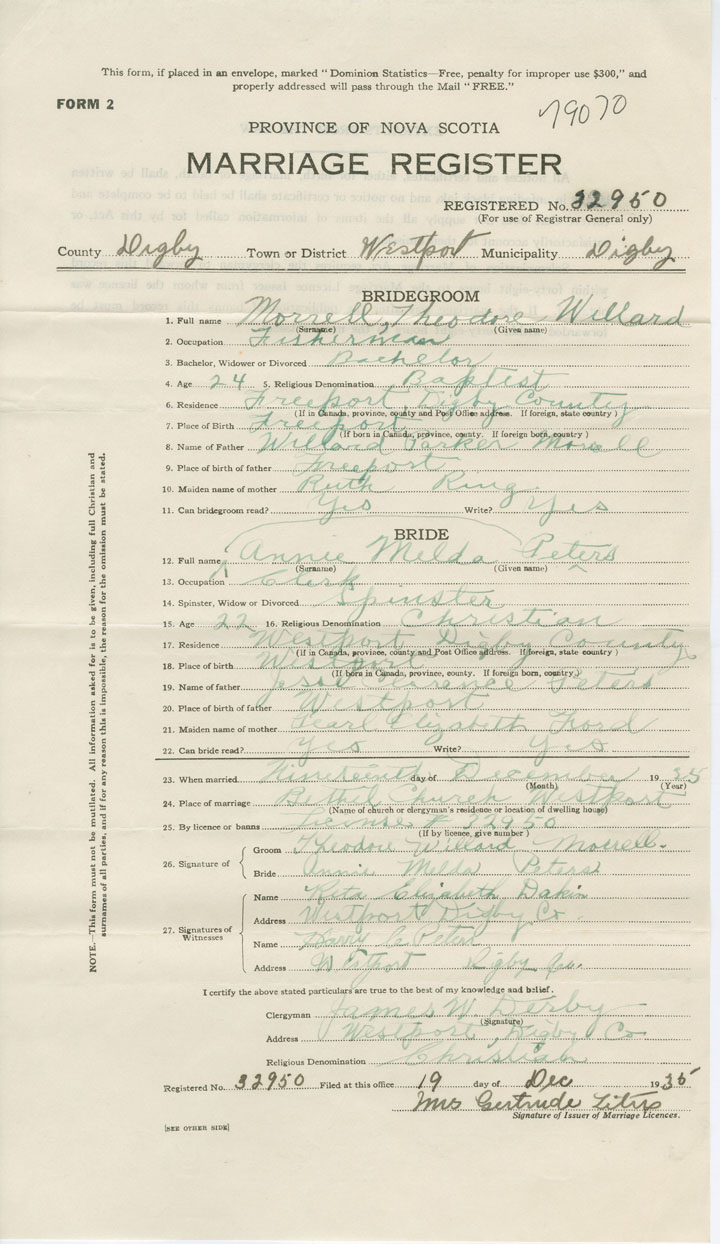 This form, if placed in an envelope, marked "Dominion Statistics—Free, penalty for improper use $300," and
properly addressed will pass through the Mail "FREE."
FORM 2
79070
PROVINCE OF NOVA SCOTIA
MARRIAGE REGISTER
REGISTERED No. 32950
(For use of Registrar General only)
County Digby Town or District Westport Municipality Digby
BRIDEGROOM
1. Full name Morrell, Theodore Willard
(Surname) (Given name)
2. Occupation Fisherman
3. Bachelor, Widower or Divorced Bachelor
4. Age 24 5. Religious Denomination Baptist
6. Residence Freeport Digby County
(If in Canada, province, county and Post Office address. If foreign, state country)
7. Place of Birth Freeport
(If born in Canada, province, county. If foreign born, country)
8. Name of Father Willard Parker Morrell
9. Place of birth of father Freeport
10. Maiden name of mother Ruth Ring
11. Can bridegroom read? Yes Write? Yes
BRIDE
12. Full name Annie Melda Peters
(Surname) (Given name)
13. Occupation Clerk
14. Spinster, Widow or Divorced Spinster
15. Age 22 16. Religious Denomination Christian
17. Residence Westport Digby County
(If in Canada, province, county and Post Office address. If foreign, state country)
18. Place of birth Westport
(If born in Canada, province, county. If foreign born, country)
19. Name of father Clarence Peters
20. Place of birth of father Westport
21. Maiden name of mother Pearl Elizabeth Ford
22. Can bride read? Yes Write? Yes
23. When married Nineteenth day of December 1935
(Month) (Year)
24. Place of marriage Bethel Church Westport
(Name of church or clergyman's residence or location of dwelling house)
25. By licence or banns License # 32950
(If by licence, give number)
26. Signature of
Groom Theodore Willard Morrell.
Bride Annie Melda Peters
27. Signatures of Witnesses
Name Elizabeth Dakin
Address Westport Digby Co.
Name Harry C Peters
Address Westport Digby Co.
I certify the above stated particulars are true to the best of my knowledge and belief.
Clergyman James W. Derby
(Signature)
Address Westport, Digby Co
Religious Denomination Christian
Registered No. 32950 Filed at this office 19 day of Dec 1935
Mrs Gertrude
Signature of Issuer of Marriage Licences.
[SEE OTHER SIDE]
NOTE.—This form must not be mutilated. All information asked for is to be given, including full Christian and
surnames of all parties, and if for any reason this is impossible, the reason for the omission must be stated.